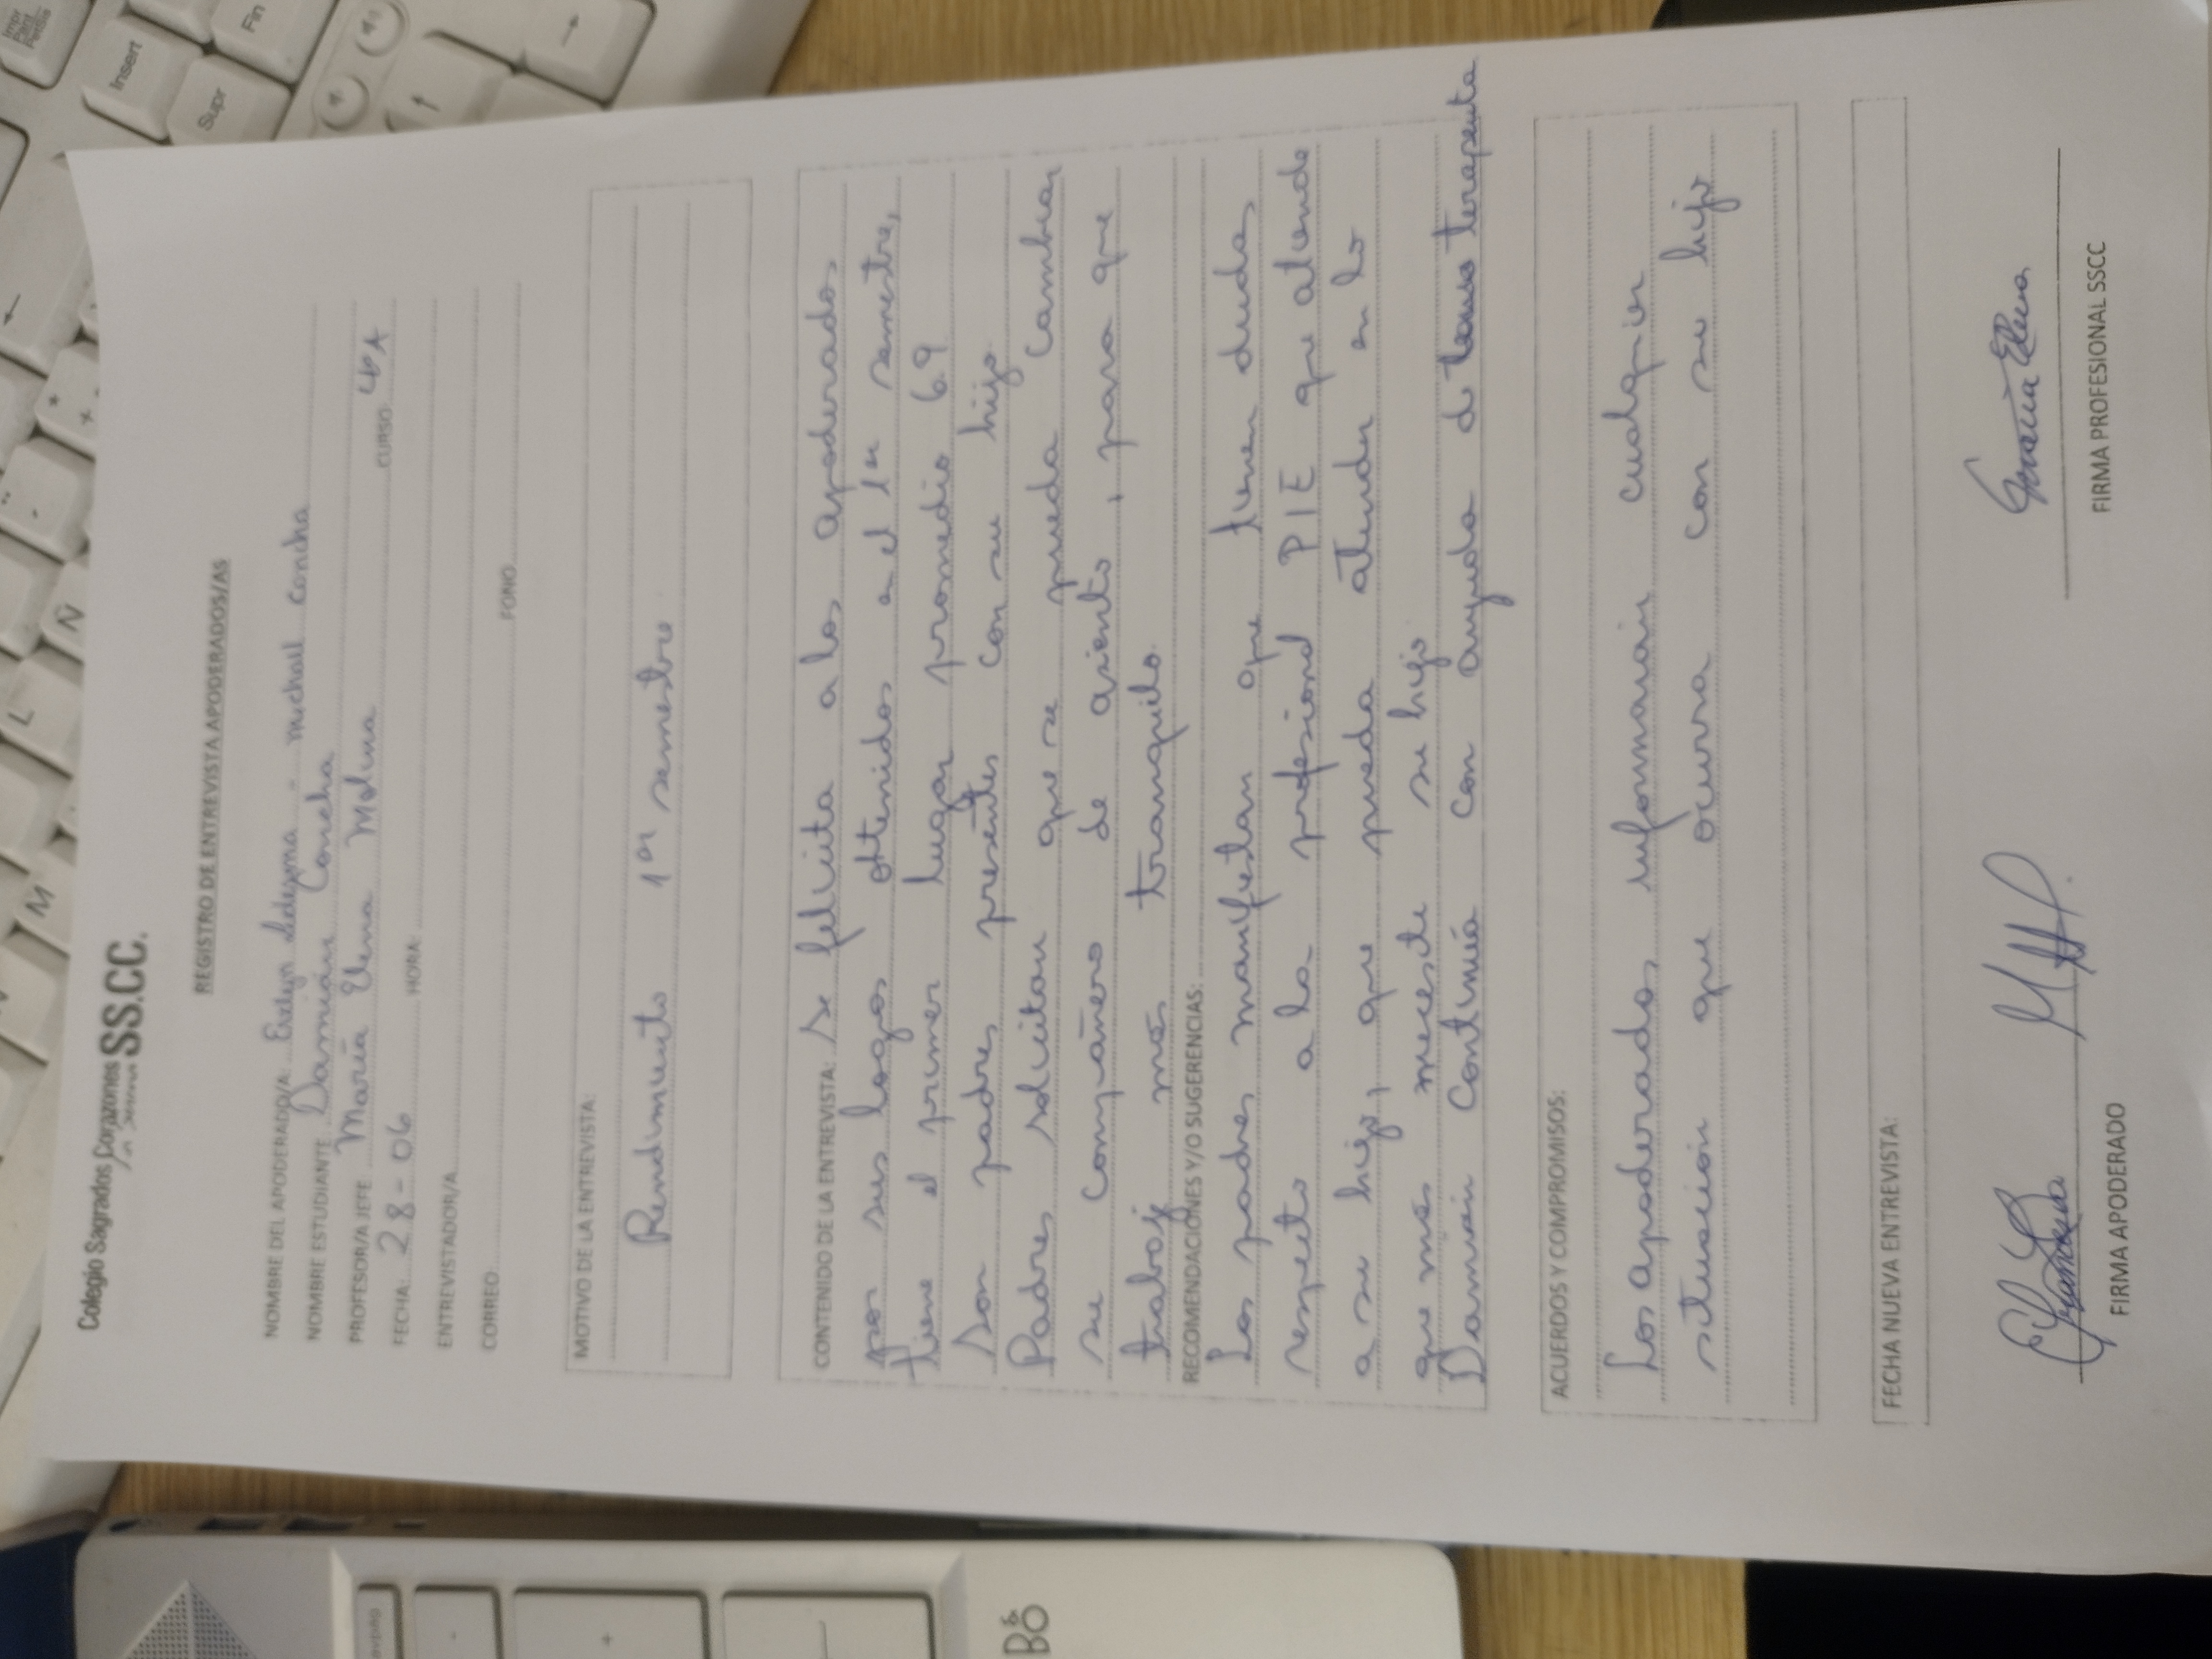 Colegio Sagrados Corazones SS.CC.
REGISTRO DE ENTREVISTA APODERADOS/AS
NOMBRE DEL APODERADO/A: Evelyn Ledezma - michael concha
NOMBRE ESTUDIANTE: Damián Concha
PROFESOR/A JEFE María Elena Molina CURSO: 4ºA
FECHA: 28-06 HORA:
ENTREVISTADOR/A
CORREO FONO
MOTIVO DE LA ENTREVISTA:
Rendimiento 1er semestre
CONTENIDO DE LA ENTREVISTA: Se felicita a los apoderados
por sus logos obtenidos en el 1er semestre,
tiene el primer lugar promedio 6.9
Son padres presentes con su hijo.
Padres solicitan que se pueda cambiar
su compañero de asiento, para que
trabaje más tranquilo.
RECOMENDACIONES Y/O SUGERENCIAS:
Los padres manifiestan que tienen dudas
respecto a la profesional PIE que atiende
a su hijo, que pueda atender en lo
que más necesite su hijo
Damián Continúa con ayuda de terapeuta
ACUERDOS Y COMPROMISOS:
Los apoderados informarán cualquier
situación que ocurra con su hijo
FECHA NUEVA ENTREVISTA:
FIRMA APODERADO
FIRMA PROFESIONAL SSCC
Insert
Supr
Fin
Ñ
L
M
B&O